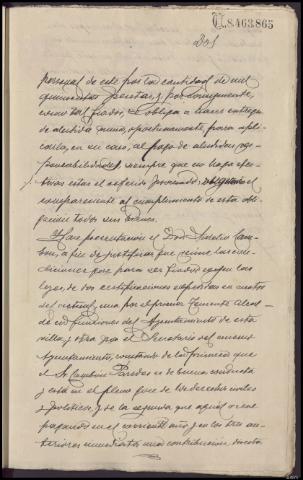 C.8463865
201
personal de este por la cantidad de mil
quinientas pesetas, y por consiguiente,
como tal fiador, se obliga a hacer entrega
de aludida suma, oportunamente, para apli-
carla, en su caso, al pago de aludidas res-
ponsabilidades, siempre que en haga efec-
tivas estas el referido procesado, obligando el
compareciente al cumplimiento de esta obli-
gación todos sus bienes.
Hace presentación el Don
a fin de justificar que reune las con-
diciones que para ser fiador exigen las
leyes, de dos certificaciones expedidas en
del actual, una por el primer Teniente Alcal-
de en funciones del Ayuntamiento de esta
villa, y otra por el Secretario del mismo
Ayuntamiento, constante de la primera que
el Sr. Paredes es de buena conducta
y está en el pleno goce de los derechos civiles
y políticos, y de la segunda que aquel viene
pagando en el corriente año, y en los tres an-
teriores inmediatos una contribución